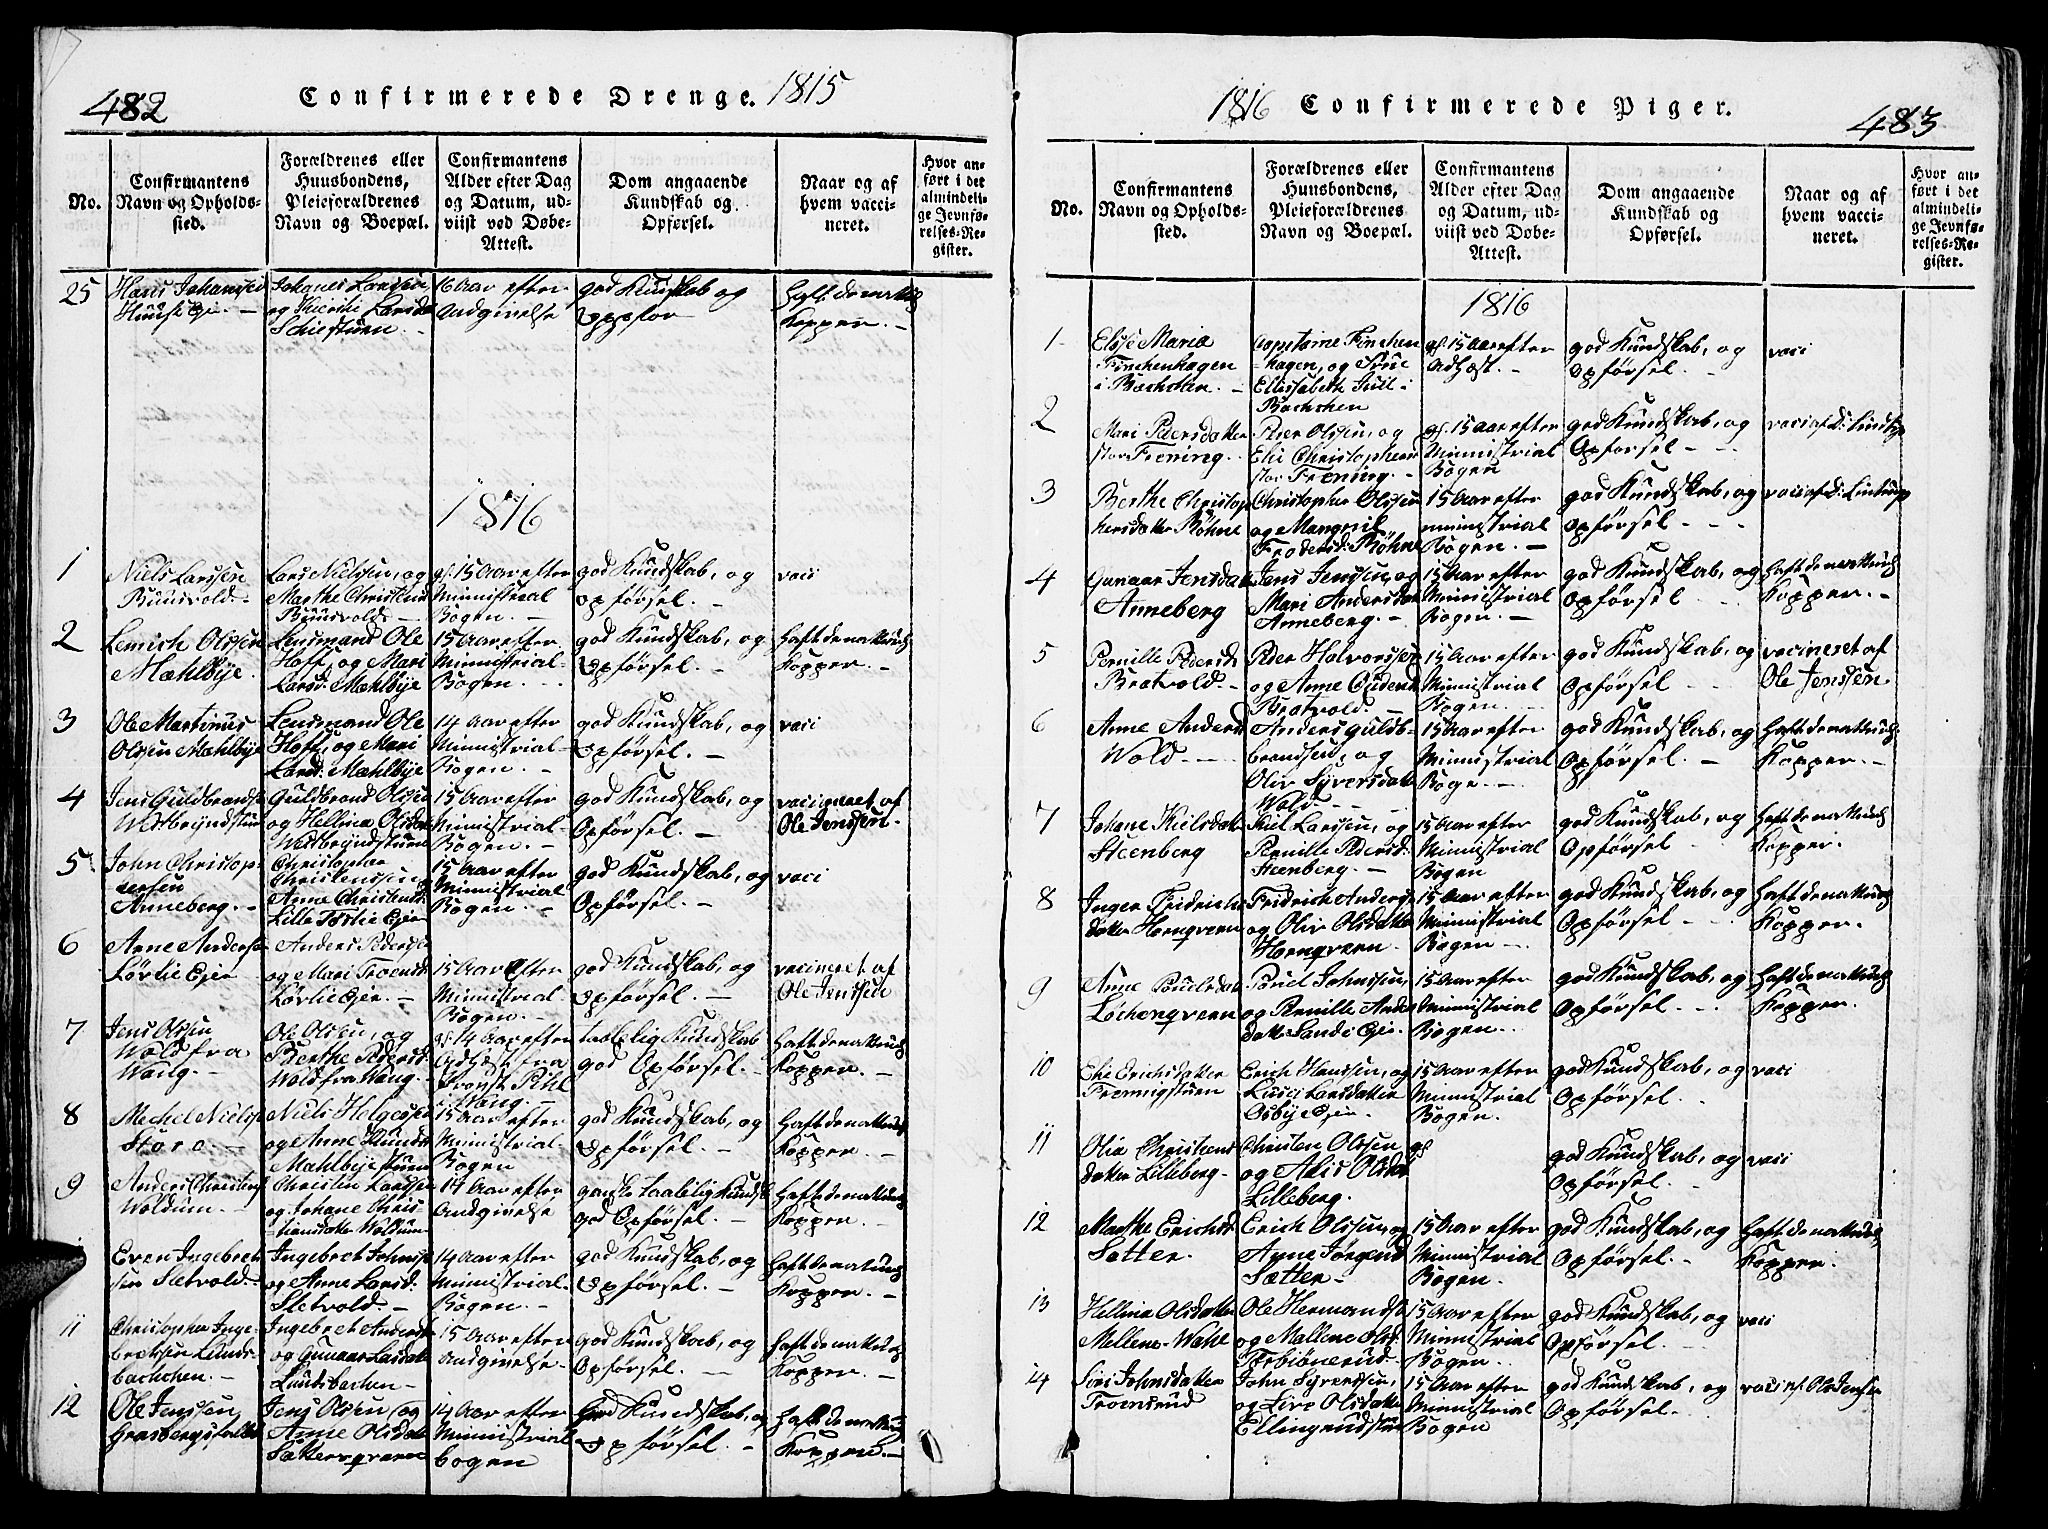 482
Confirmerede Drenge. 1815
No.
Confirmantens
Navn og Opholds-
sted.
Forældrenes eller
Huusbondens,
Pleieforældrenes
Navn og Boepæl.
Confirmantens
Alder efter Dag
og Datum, ud-
viist ved Døbe-
Attest.
Dom angaaende
Kundskab og
Opførsel.
Naar og af
hvem vacci-
neret.
Hvor an-
ført i det
almindeli-
ge Jevnfø-
relses-Re-
gister.
25
Hans Johansen
Huuse Eje. -
Johanes Larssen
og Kierstie Larsd
Schiestuen -
16 Aar efter
Andgivelse
god Kunskab og
Oppsfor
Haft de nattulig
Kopper. -
1816
1
Niels Larssen
Buusvold. -
Lars Nielssen, og
Marthe Christiens
Buusvold -
gl. 15 Aar efter
Ministrial
Bogen. -
god Kundskab, og
opførsel. -
vaci
2
Lemich Olssen
Mæhlbye.
Lensmand Ole
Hoff, og Mari
Larsd: Mæhlbye
15 Aar efter
Ministrial-
Bogen. - -
god Kundskab, og
Opførsel. -
Haft de nattulig
Kopper. -
3
Ole Martinus
Olssen Mæhlbye
Lensmand Ole
Hoff, og Mari
Larsd: Mæhlbye
14 Aar efter
Ministrial-
Bogen. -
god Kundskab, og
Opførsel. -
vaci
4
Jens Guldbrands
Westbyndstuen
Guldbrand Olssen
og Hellina Olsdat
Westbyndstuen
15 Aar efter
Ministrial-
Bogen. -
god Kundskab, og
Opførsel. -
vacineret af
Ole Jenssen. -
5
John Christop-
hersen
Anneberg. -
Christopher
Christenssen og
Anne Christensd
Lille Eje
15 Aar efter
Ministrial
Bogen. -
god Kundskab, og
Opførsel. -
vaci
6
Arne Anderse
Lørlie Ejer
Anders Pederssen
og Mari Troensd
Lørlie Ejer. -
15 Aar efter
Ministrial-
Bogen. -
god Kundskab, og
opførsel. -
vacineret af
Ole Jenssen
7
Jens Olssen
Wold fra
Wang. -
Ole Olssen, og
Berthe Pedersd
Wold fra Wang. -
gl. 14 Aar efter
Adtest fra
Provst Pihl
i Wang. -
taalelig Kundskab
god Opførsel. -
Haft de nattulig
Kopper. -
8
Mechel Nielss
Hora. -
Niels Holgess
og Anne Knuds
Mæhlbyestuen
15 Aar efter
Ministrial-
Bogen
god Kundskab, og
Opførsel. -
Haft de nattulig
Kopper. -
9
Anders Christens
Woldum. -
Christen Larssen
og Johane Chris-
tiansdatter Woldum
19 Aar efter
Andgivelse
ganske taalelig Kundsk
god Opførsel. -
Haft de nattulig
Kopper. -
Even Ingebret
sen Sletvold. -
Ingebret Johnss
og Anne Larsd:
Sletvold. -
14 Aar efter
Ministrial-
Bogen. -
god Kundskab, og
Opførsel. -
Haft de natulig
Kopper. -
11
Christopher Inge-
bretssen Lunds-
bachchen. -
Ingebret Anderss
og Gunaar Larsdat
Lundsbachen -
15 Aar efter
andgivelse -
god Kundskab, og
Opførsel. -
Haft de nattulig
Kopper. -
12
Ole Jenssen
Grasbergsfallet
Jens Olssen og
Anne Olsdat
Sættersqværn
14 Aar efter
Ministrial
bogen
God Kundskab, og
Opførsel. -
Haft de nattulig
Kopper. -
1816 Confirmerede Piger.
483
No.
Confirmantens
Navn og Opholds-
sted.
Forældrenes eller
Huusbondens,
Pleieforældrenes
Navn og Boepæl.
Confirmantens
Alder efter Dag
og Datum, ud-
viist ved Døbe-
Attest.
Dom angaaende
Kundskab og
Opførsel.
Naar og af
hvem vacci-
neret.
Hvor an-
ført i det
almindeli-
ge Jevnfø-
relses-Re-
gister.
1816
1
Elsse Maria
Finchenhagen
i Bachchen. -
Finchen
-hagen, og
Ellisabeth Juel i
Bachchen
gl. 15 Aar efter
Adtæst. -
god Kundskab, og
opførsel. -
vaci
2
Mari Pedersdatter
stor Frening. -
Peder Olssen, og
Elie Christophersd
stor Frening. -
gl. 15 Aar efter
Ministrial
Bogen
god Kundskab, og
Opførsel - - -
vaci af D: Lindtrup
3
Berthe Christop
hersdatter Bøhne
Christopher Olssen
og Mangnil
Frodersd: Bøhne
15 Aar efter
ministrial
Bogen. -
god Kundskab, og
opførsel - - -
vaci af D: Lintrup
4
Gunaar Jensdatt
Anneberg
Jens Jenssen, og
Mari Andersdat
Anneberg. -
15 Aar efter
Ministrial
Bogen. -
god Kundskab, og
Opførsel - - -
Haft de nattulig
Kopper. -
5
Pernille Pedersd
Bratvold -
Peder Halvorssen
og Anne Gudersd
Bratvold. -
15 Aar efter
Ministrial
Bogen. - -
god Kundskab, og
Opførsel - -
vacineret af
Ole Jenssen
6
Anne Andersd
Wold - -
Anders Guldb-
brandsen, og
Oliv Syversdatt
Wold - - -
15 Aar efter
Ministrial
Boge. -
god Kundskab, og
Opførsel. -
Haft de nattulig
Kopper. -
7
Johane Kielsdat
Steenberg
Kiel Larssen, og
Pernille Pedersd:
Steenberg. -
15 Aar efter
Ministrial
Bogen
god Kundskab, og
Opførsel -
Haft de nattulig
Kopper.
8
Inger Fridrichs
datter Hornqvern
Fridrich Anderss
og Oliv Olsdatte
Hornqvern.
15 Aar efter
Ministrial
Bogen -
god Kundskab, og
Opførsel. - -
Haft de nattulig
Kopper.
9
Anne Pouelsdat
Løchenqvern
Pouel Johnssen,
og Pernille Anders
datter Sande Ejer.
15 Aar efter
Ministrial
Bogen. -
god Kundskab, og
Opførsel. -
Haft de nattulig
Kopper.
10
Elie Erichsdatter
Freningstuen
Erich Hanssen, og
Lusei Larsdatter
Osbye Ejer
15 Aar efter
Ministrial
Bogen.
god Kundskab, og
Opførsel. -
vaci
11
Olia Christens
datter Lilleberg -
Christen Olssen
og Alis Olsdat
Lilleberg.
gl
god Kundskab, og
Opførsel. -
vaci
12
Marthe Erichsd
Sætter.
Erich Olssen, og
Anne Jørgensd
Sætter -
15 Aar efter
Ministrial
Bogen.
god Kundskab, og
Opførsel. -
Haft de nattulig
Kopper.
13
Hellina Olsdatter
Mellene-Wahl
Ole Hermands
og Mallene Olsd:
Torbiønerud -
15 Aar efter
Ministrial
Bogen. -
god Kundskab, og
Opførsel. -
vaci
14
Siri Johnsdatter
Troensrud
John Syverssen,
og Live Olsdatter
Ellingrudstuen
15 Aar efter
Ministrial
Bogen
god Kundskab, og
Opførsel. -
vaci af Ole Jensen